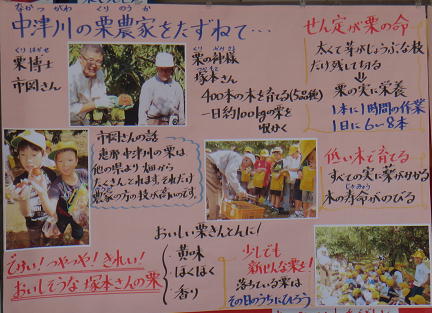 なかつがわ くりのうか
中津川の栗農家をたずねて…
くりはかせ
栗博士
市岡さん
くり かみさま
栗の神様
つかもと
塚本さん
400本の木を育てる(5品種)
一日約100kgの栗を
せん定が栗の命
太くて芽がしょうぶな枝
だけ残して切る
⇓
栗の実に栄養
1本に1時間の作業
1日に6〜8本
市岡さんの話
恵那 中津川の栗は
他の県より畑から
たくさんとれます。それだけ
農家の方の技が高いのです。
低い木で育てる
すべての実に葉がかかる
じゅみょう
木の寿命がのびる
でかい!つやつや!きれい!
おいしそうな塚本さんの栗
おいしい栗きんとんに!
黄味
ほくほく
香り
少しでも
新せんな栗を!
落ちている栗は
その日のうちにひろう